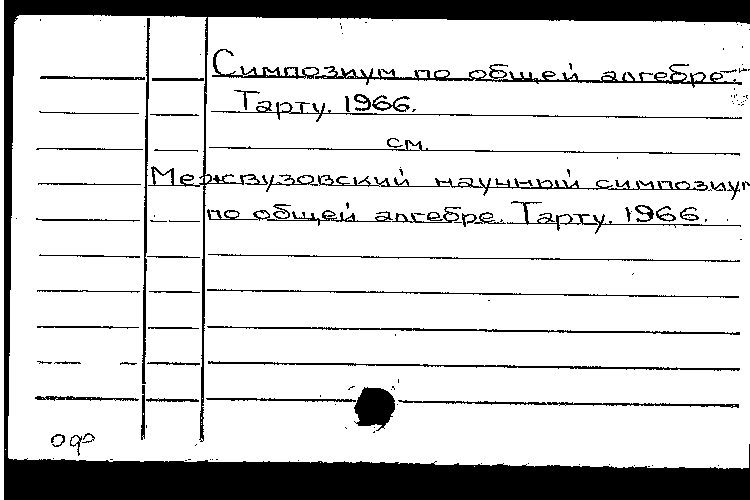 Симпозиум по общей алгебре.
Тарту. 1966.
см.
Межвузовский научный симпозиум
по общей алгебре. Тарту. 1966.